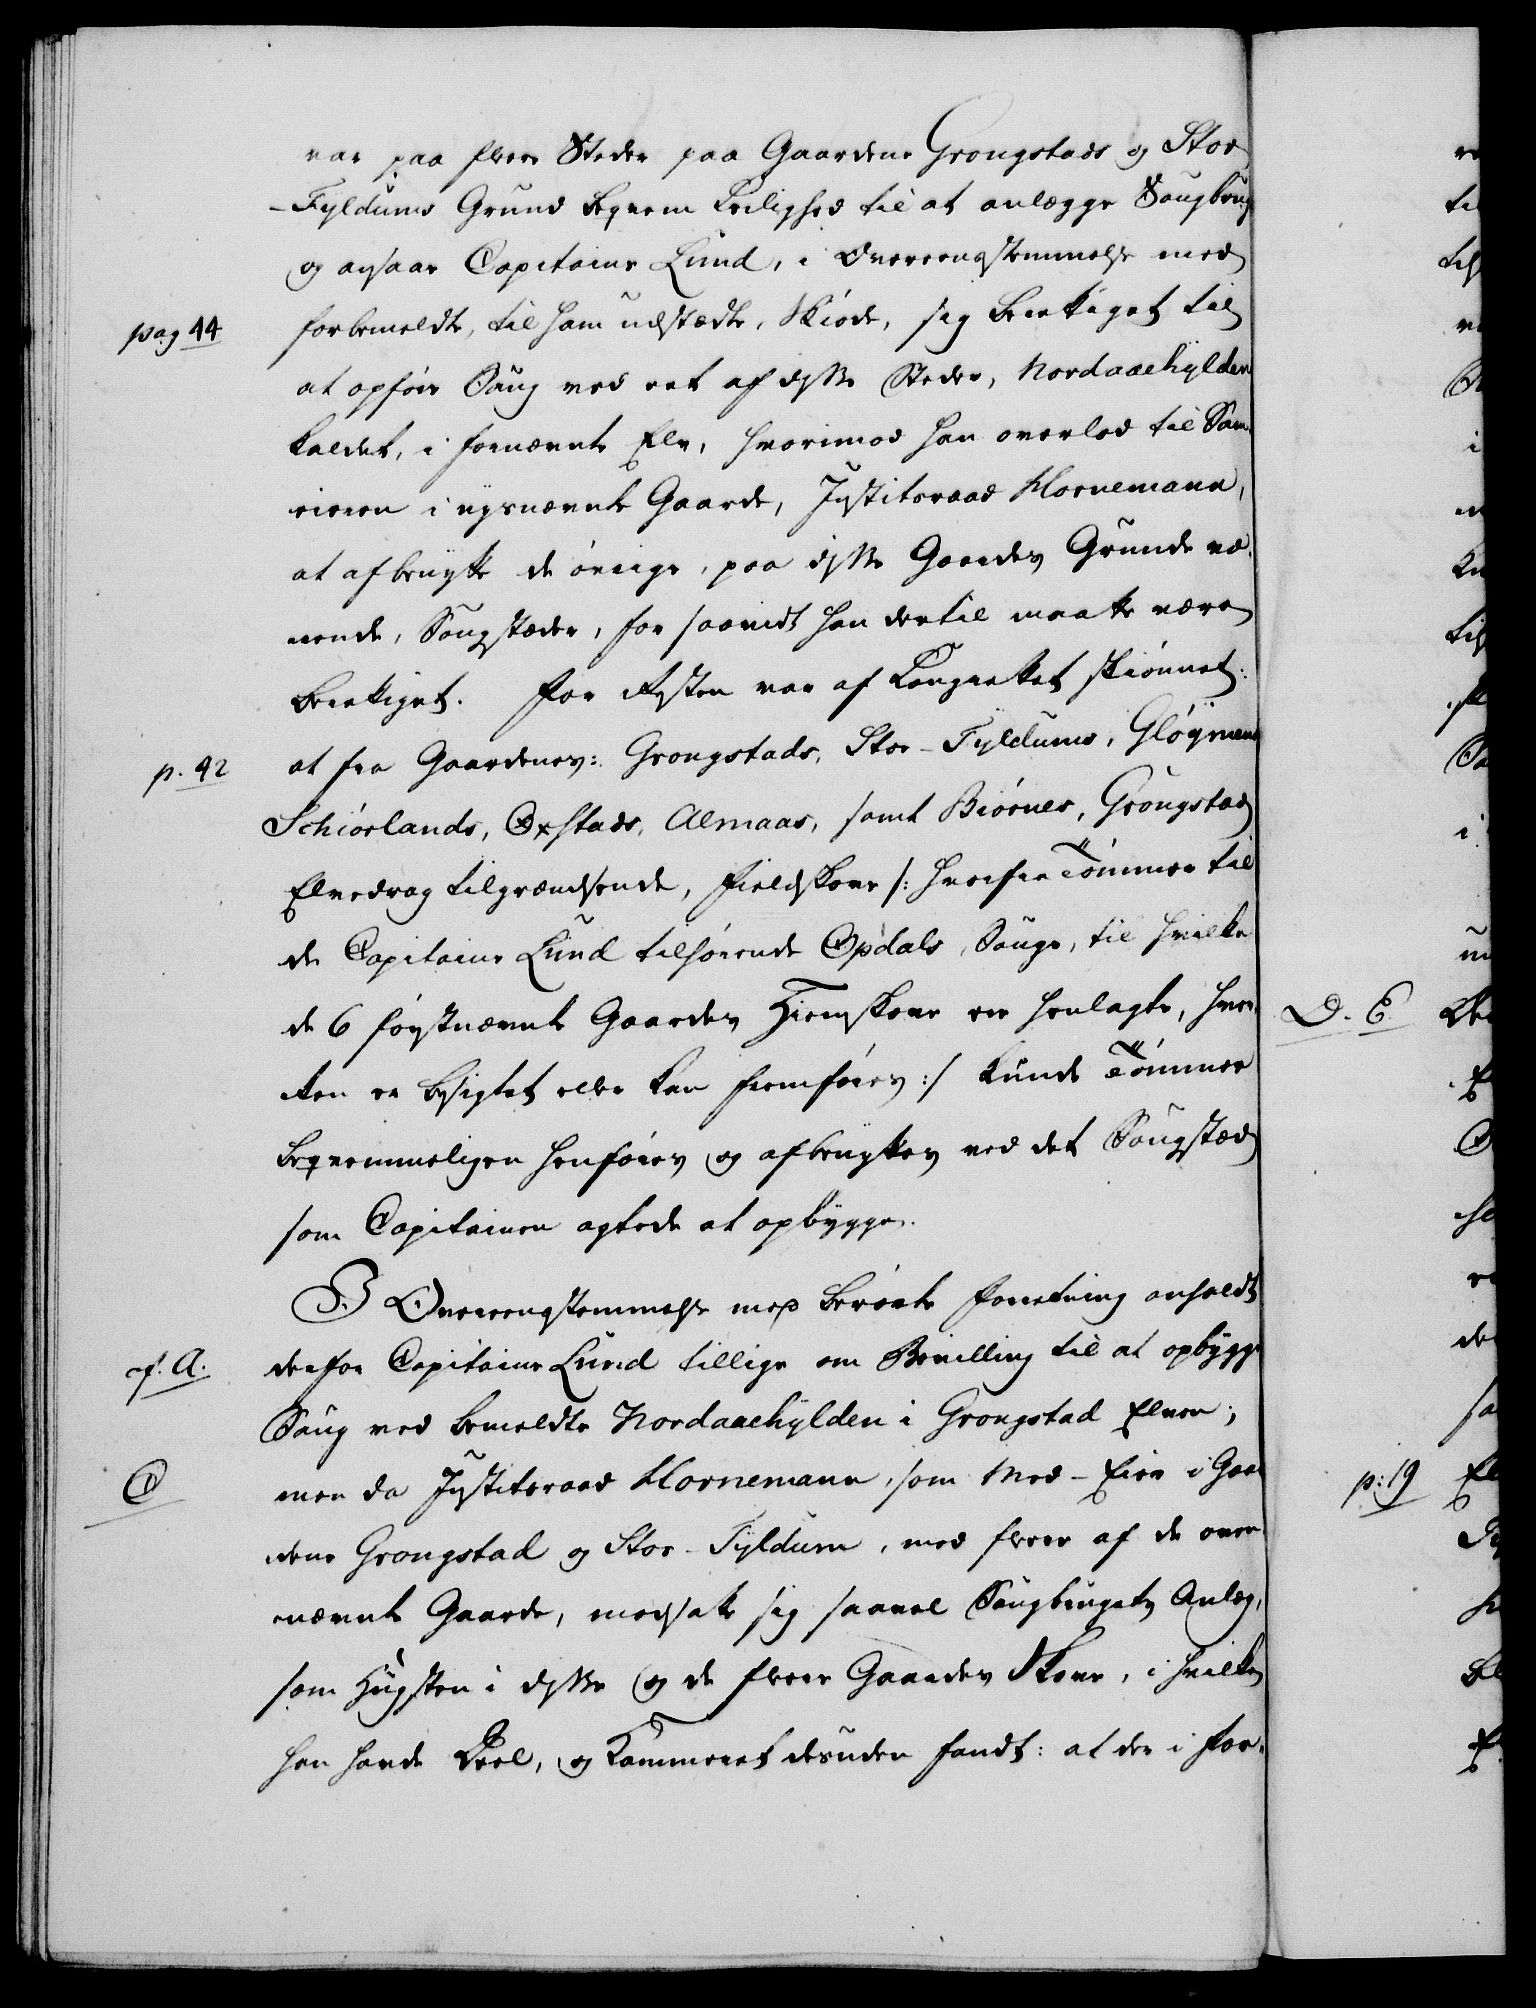 var paa flere Steder paa Gaardene Grongstads og Stor
-Fyldums Grund beqvem Leilighed til at anlægge Saugbrug
og ansaae Capitaine Lund, i Overeensstemmelse med
pag 44 forbemeldte, til ham udstædte, Skiøde, sig berettiget til
at opføre Saug ved eet af disse Steder, Nordaaehylden
kaldet, i fornævnte Elv, hvorimod han overlod til Sam-
eieren i nysnævnte Gaarde, Justitsraad Hornemann,
at afbenytte de øvrige, paa disse Gaardes Grunde væ-
rende, Saugstæder, for saavidt han dertil maatte være
berettiget. For Resten var af Laugrettet skiønnet:
p. 42 at fra Gaardenes: Grongstads, Stor-Fyldums, Gløymens
Schiørlands, Oxstads, Almaas, samt Biørnes, Grongstad
Elvedrag tilgrændsende, Fieldskove /: hvorfra Tømmer til
de Capitaine Lund tilhørende Opdals Sauge, til hvilke
de 6 førstnævnte Gaardes Hiemskove ere henlagte, hver-
ken er besigtet eller kan fremføres :/ kunde Tømmer
beqvemmeligen henføres og afbenyttes ved det Saugstæd
som Capitainen agtede at opbygge.
I Overeensstemmelse med berørte Forretning anholdt
cf. A. derfor Capitaine Lund tillige om Bevilling til at opbygge
Saug ved bemeldte Nordaaehylden i Grongstad Elven;
C men da Justitsraad Hornemann, som Med-Eier i Gaar-
dene Grongstad og Stor-Fyldum, med flere af de oven-
nævnte Gaarde, modsatte sig saavel Saugbrugets Anlæg,
som Hugsten i disse og de flere Gaardes Skove, i hvilke
han havde Deel, og Kammeret desuden fandt: at der i For-
D. E.
p: 19